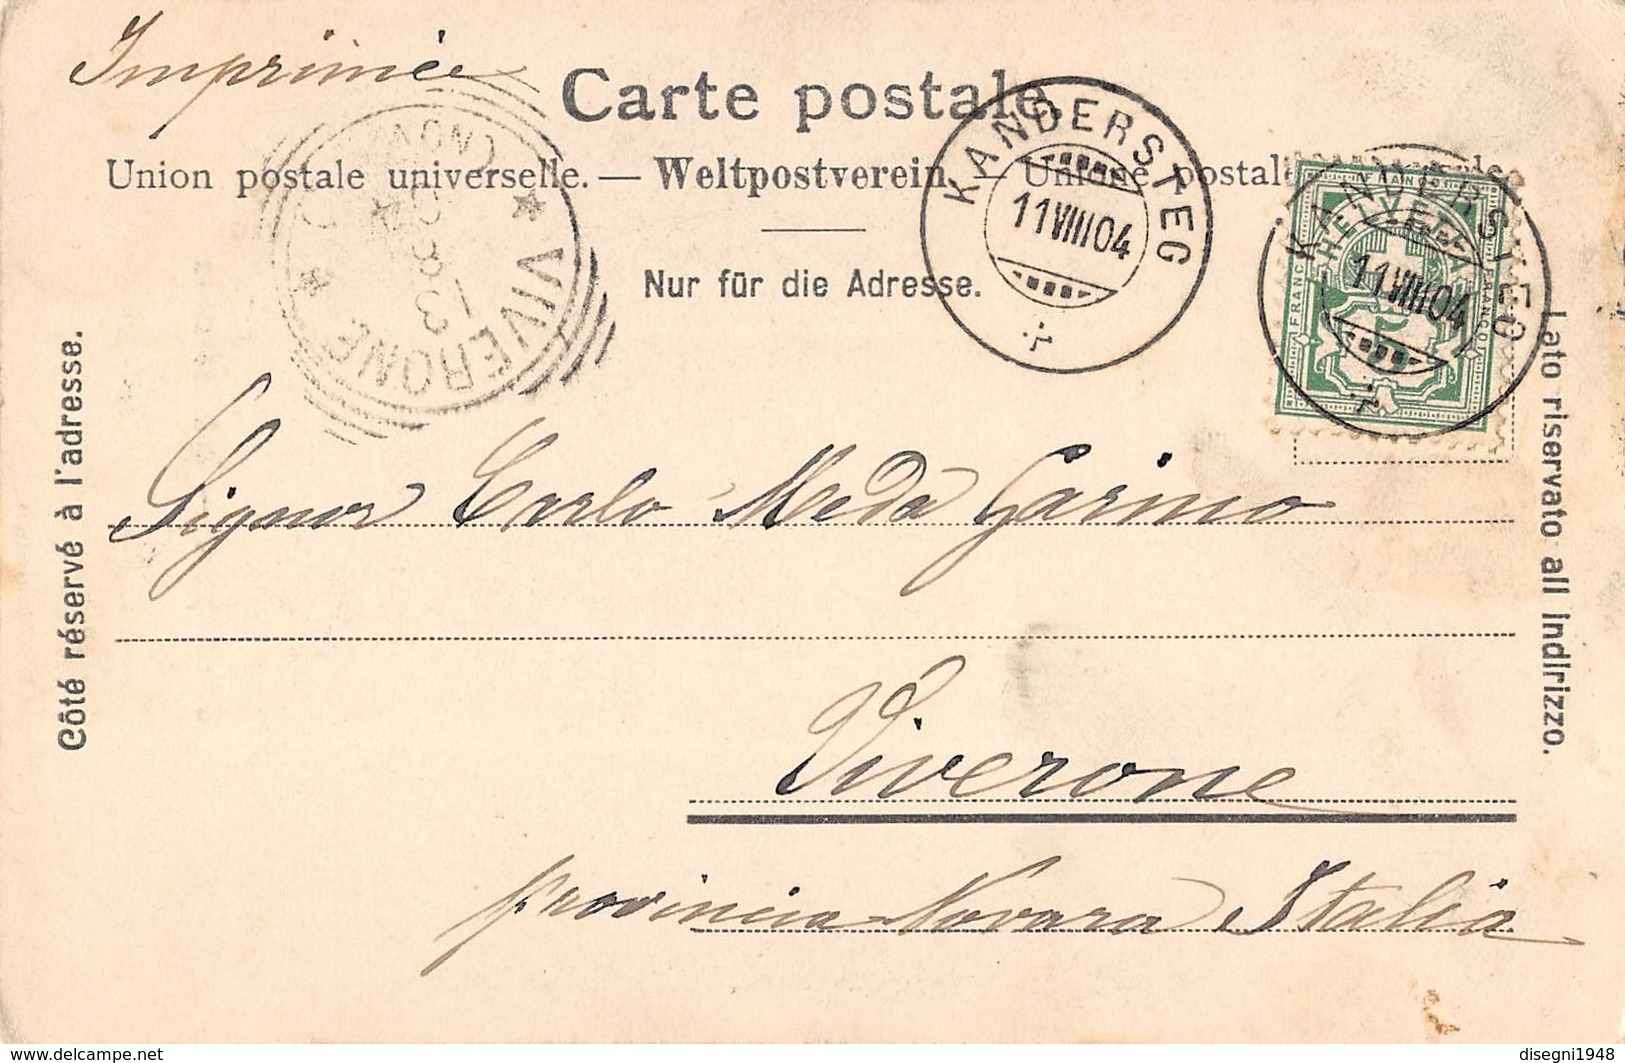 Imprimée
Carte postale.
Union postale universelle. — Weltpostverein — Unione postale
Nur für die Adresse.
KANDERSTEG
11 VIII 04
KANDERSTEG
11 VIII 04
HELVETIA
FRANCO
5
VIVERONE
13
8
Côté réservé à l'adresse.
Lato riservato all indirizzo.
Signor Carlo Meda Garino
Viverone
provincia Novara Italia
www.delcampe.net
disegni1948